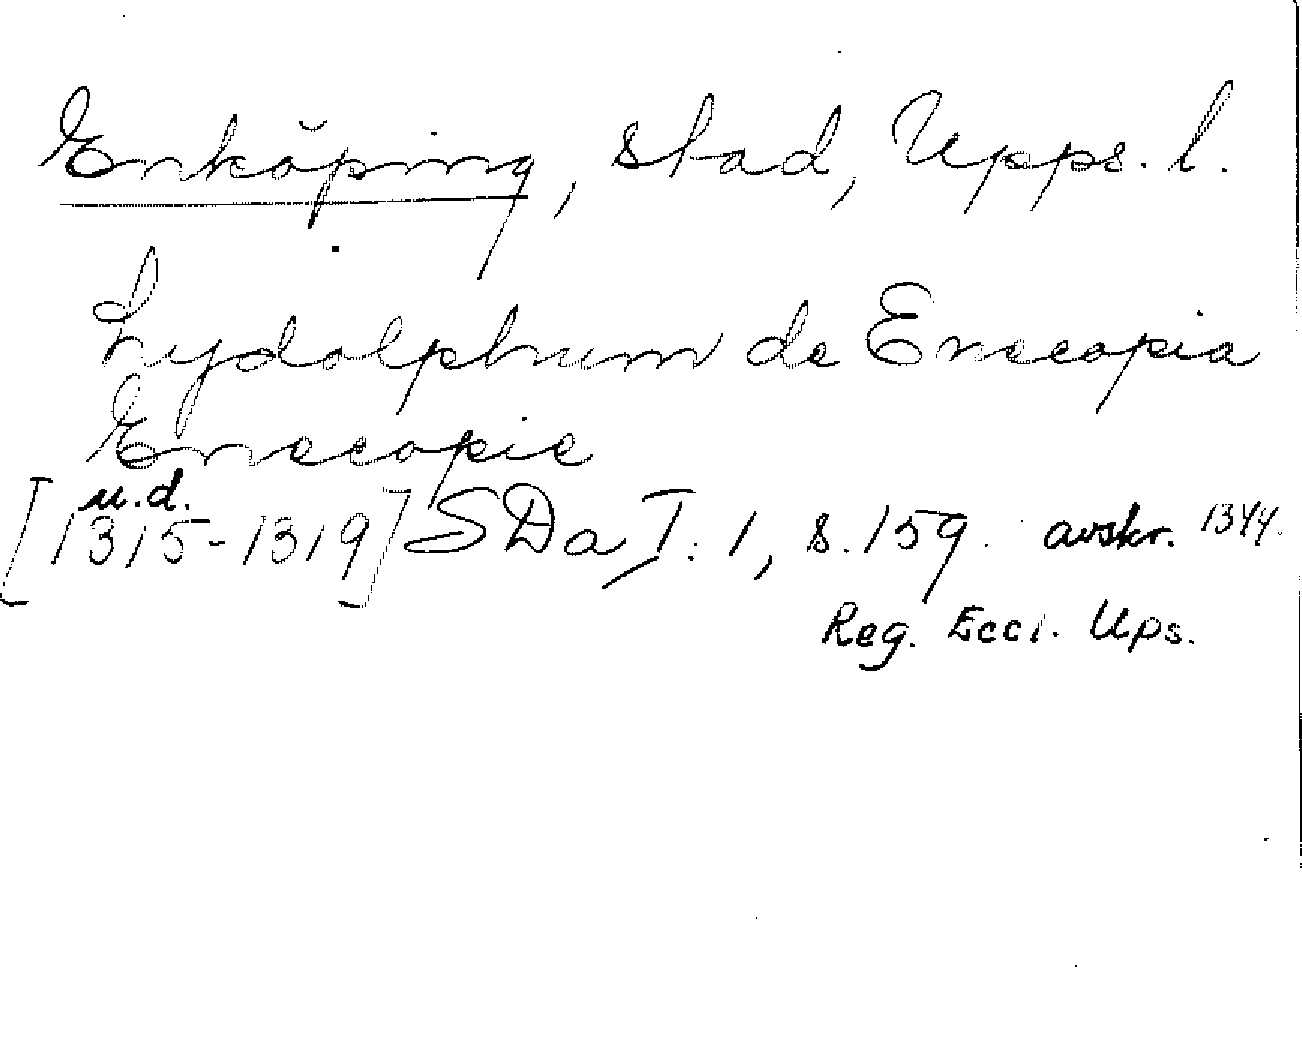 Enköping, stad, Upps. l.
Lydolphum de Enecopia
Enecopie
u.d.
[1315-1319] SDa I: 1, s. 159. avskr. 1344.
Reg. Eccl. Ups.